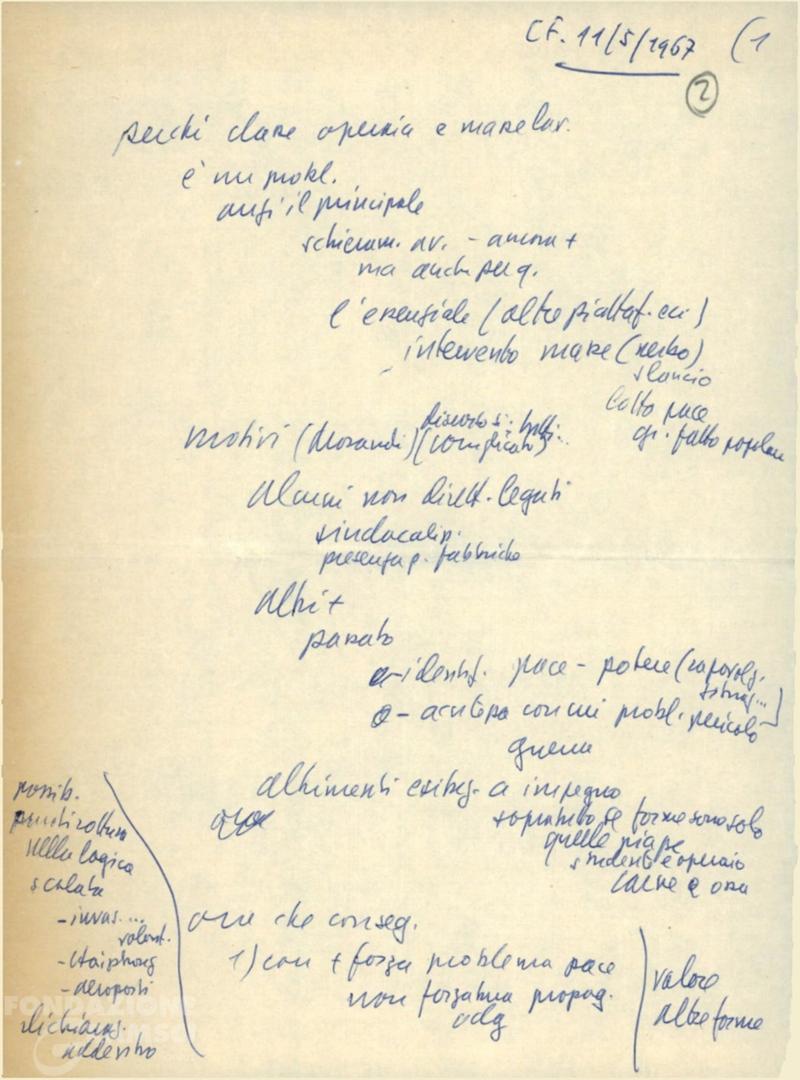 CF. 11/5/1967 (1
2
perché classe operaia e masse lav.
è un probl.
anzi il principale
schieram. av. - ancora +
ma anche per q.
l'essenziale (altre piattaf. ecc)
intervento masse (nerbo)
slancio
lotta pace
gr. fatto popolare
motivi (Morandi) (complicato)
discorso si
alcuni non dirett. legati
sindacalizz.
presenza p. fabbriche
altri +
passato
- identif. pace - potere (capovolg.
situaz...)
- acutezza con cui probl. pericolo
guerra
altrimenti esitaz. a impegno
soprattutto se forme sono solo
quelle piazze
studenti e operaio
carne e ossa
possib.
punti rottura
nella logica
scalata
- invas....
- Haiphong
- aeroporti
dichiaraz.
addestro
ora che conseg.
1) con + forza problema pace
non forzatura propag.
odg
valore
altre forme
FONDAZIONE
GRAMSCI